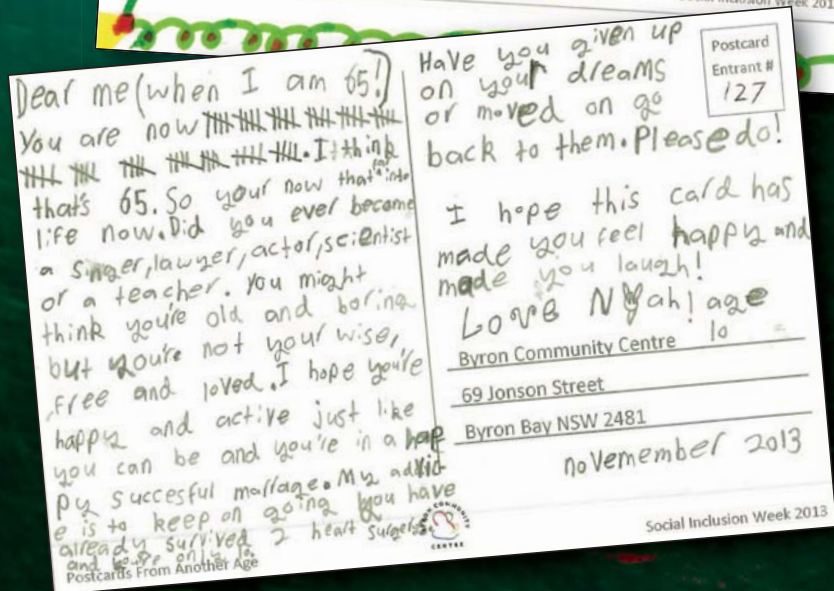 Social Inclusion Week 201
Dear me (when I am 65!)
You are now 卌 卌 卌 卌 卌 卌
卌 卌 卌 卌 卌 卌 卌. I think
that's 65. So your now that far into
life now. Did you ever become
a singer, lawyer, actor, scientist
or a teacher. You might
think you're old and boring
but you're not your wiser,
free and loved. I hope you're
happy and active just like
you can be and you're in a hap
py succesful marrage. My advic
e is to keep on going you have
already survived 2 heart surgerys
and you're only 10.
Postcards From Another Age
Have you given up
on your dreams
or moved on go
back to them. Please do!
I hope this card has
made you feel happy and
made you laugh!
Love Nyah! age
10
Postcard
Entrant #
127
Byron Community Centre
69 Jonson Street
Byron Bay NSW 2481
november 2013
BYRON COMMUNITY
CENTRE
Social Inclusion Week 2013